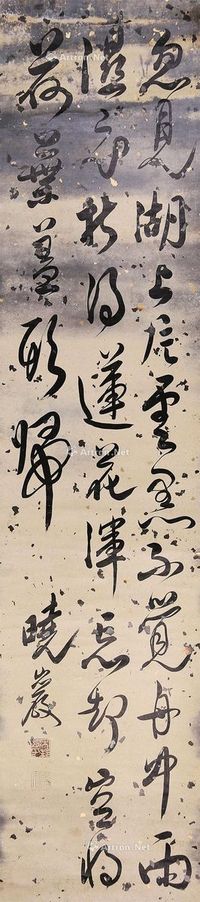 忽見湖上片雲飛不覺舟中雨
濕衣折得蓮花渾忘却空將
荷葉蓋頭歸
曉巖
Artron.Net